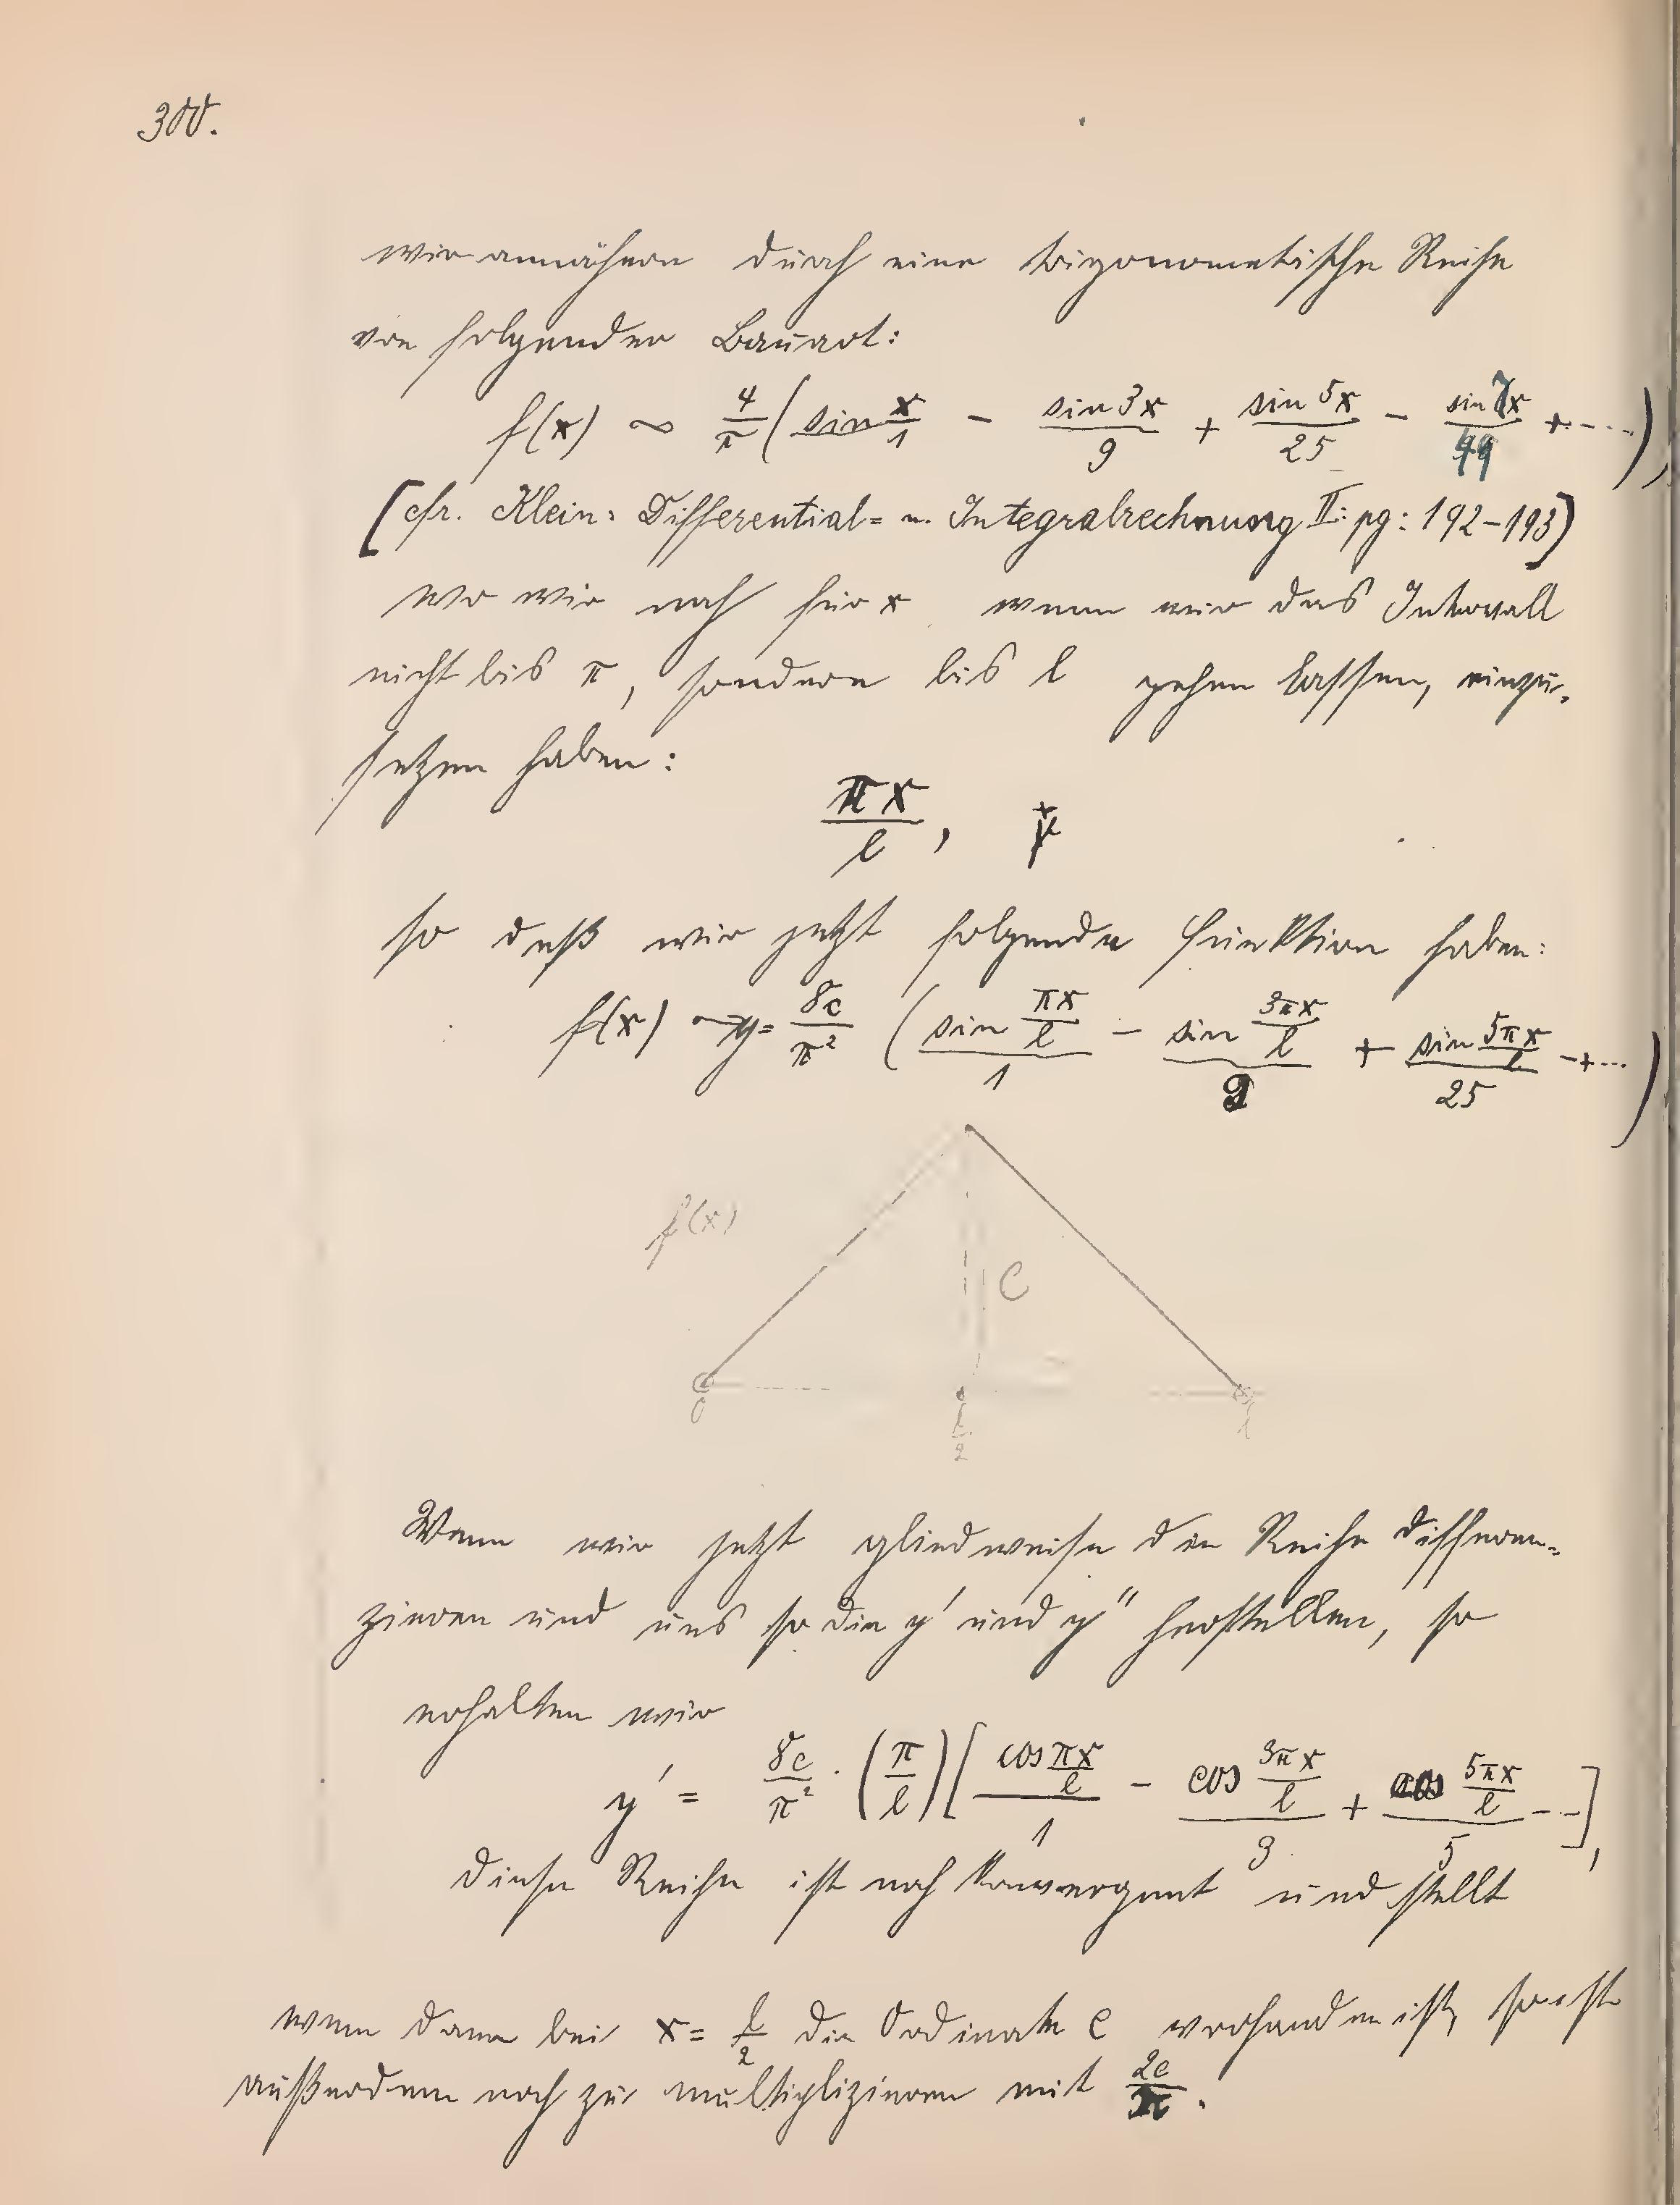 300.
wir annähern durch eine trigonometrische Reihe
von folgender Bauart:
f(x) ∾ 4/π (sin x/1 − sin 3x/9 + sin 5x/25 − sin 7x/49 + ....),
[cfr. Klein: Differential= u. Integralrechnung II: pg: 192–193]
wo wir noch für x wenn wir das Intervall
nicht bis π, sondern bis l gehen lassen, einzu=
setzen haben:
πx/l,
so daß wir jetzt folgende Funktion haben:
f(x) ∾ y = 8c/π² (sin πx/l / 1 − sin 3πx/l / 9 + sin 5πx/l / 25 − + ...)
f(x)
C
0 l/2 l
Wenn wir jetzt gliedweise die Reihe differen=
zieren und uns so die y' und y'' herstellen, so
erhalten wir
y' = 8c/π² · (π/l) [cos πx/l / 1 − cos 3πx/l / 3 + cos 5πx/l / 5 − ...],
diese Reihe ist noch konvergent und stellt
wenn dann bei x = l/2 die Ordinate c vorhanden ist, so ist
außerdem noch zu multiplizieren mit 2c/π.